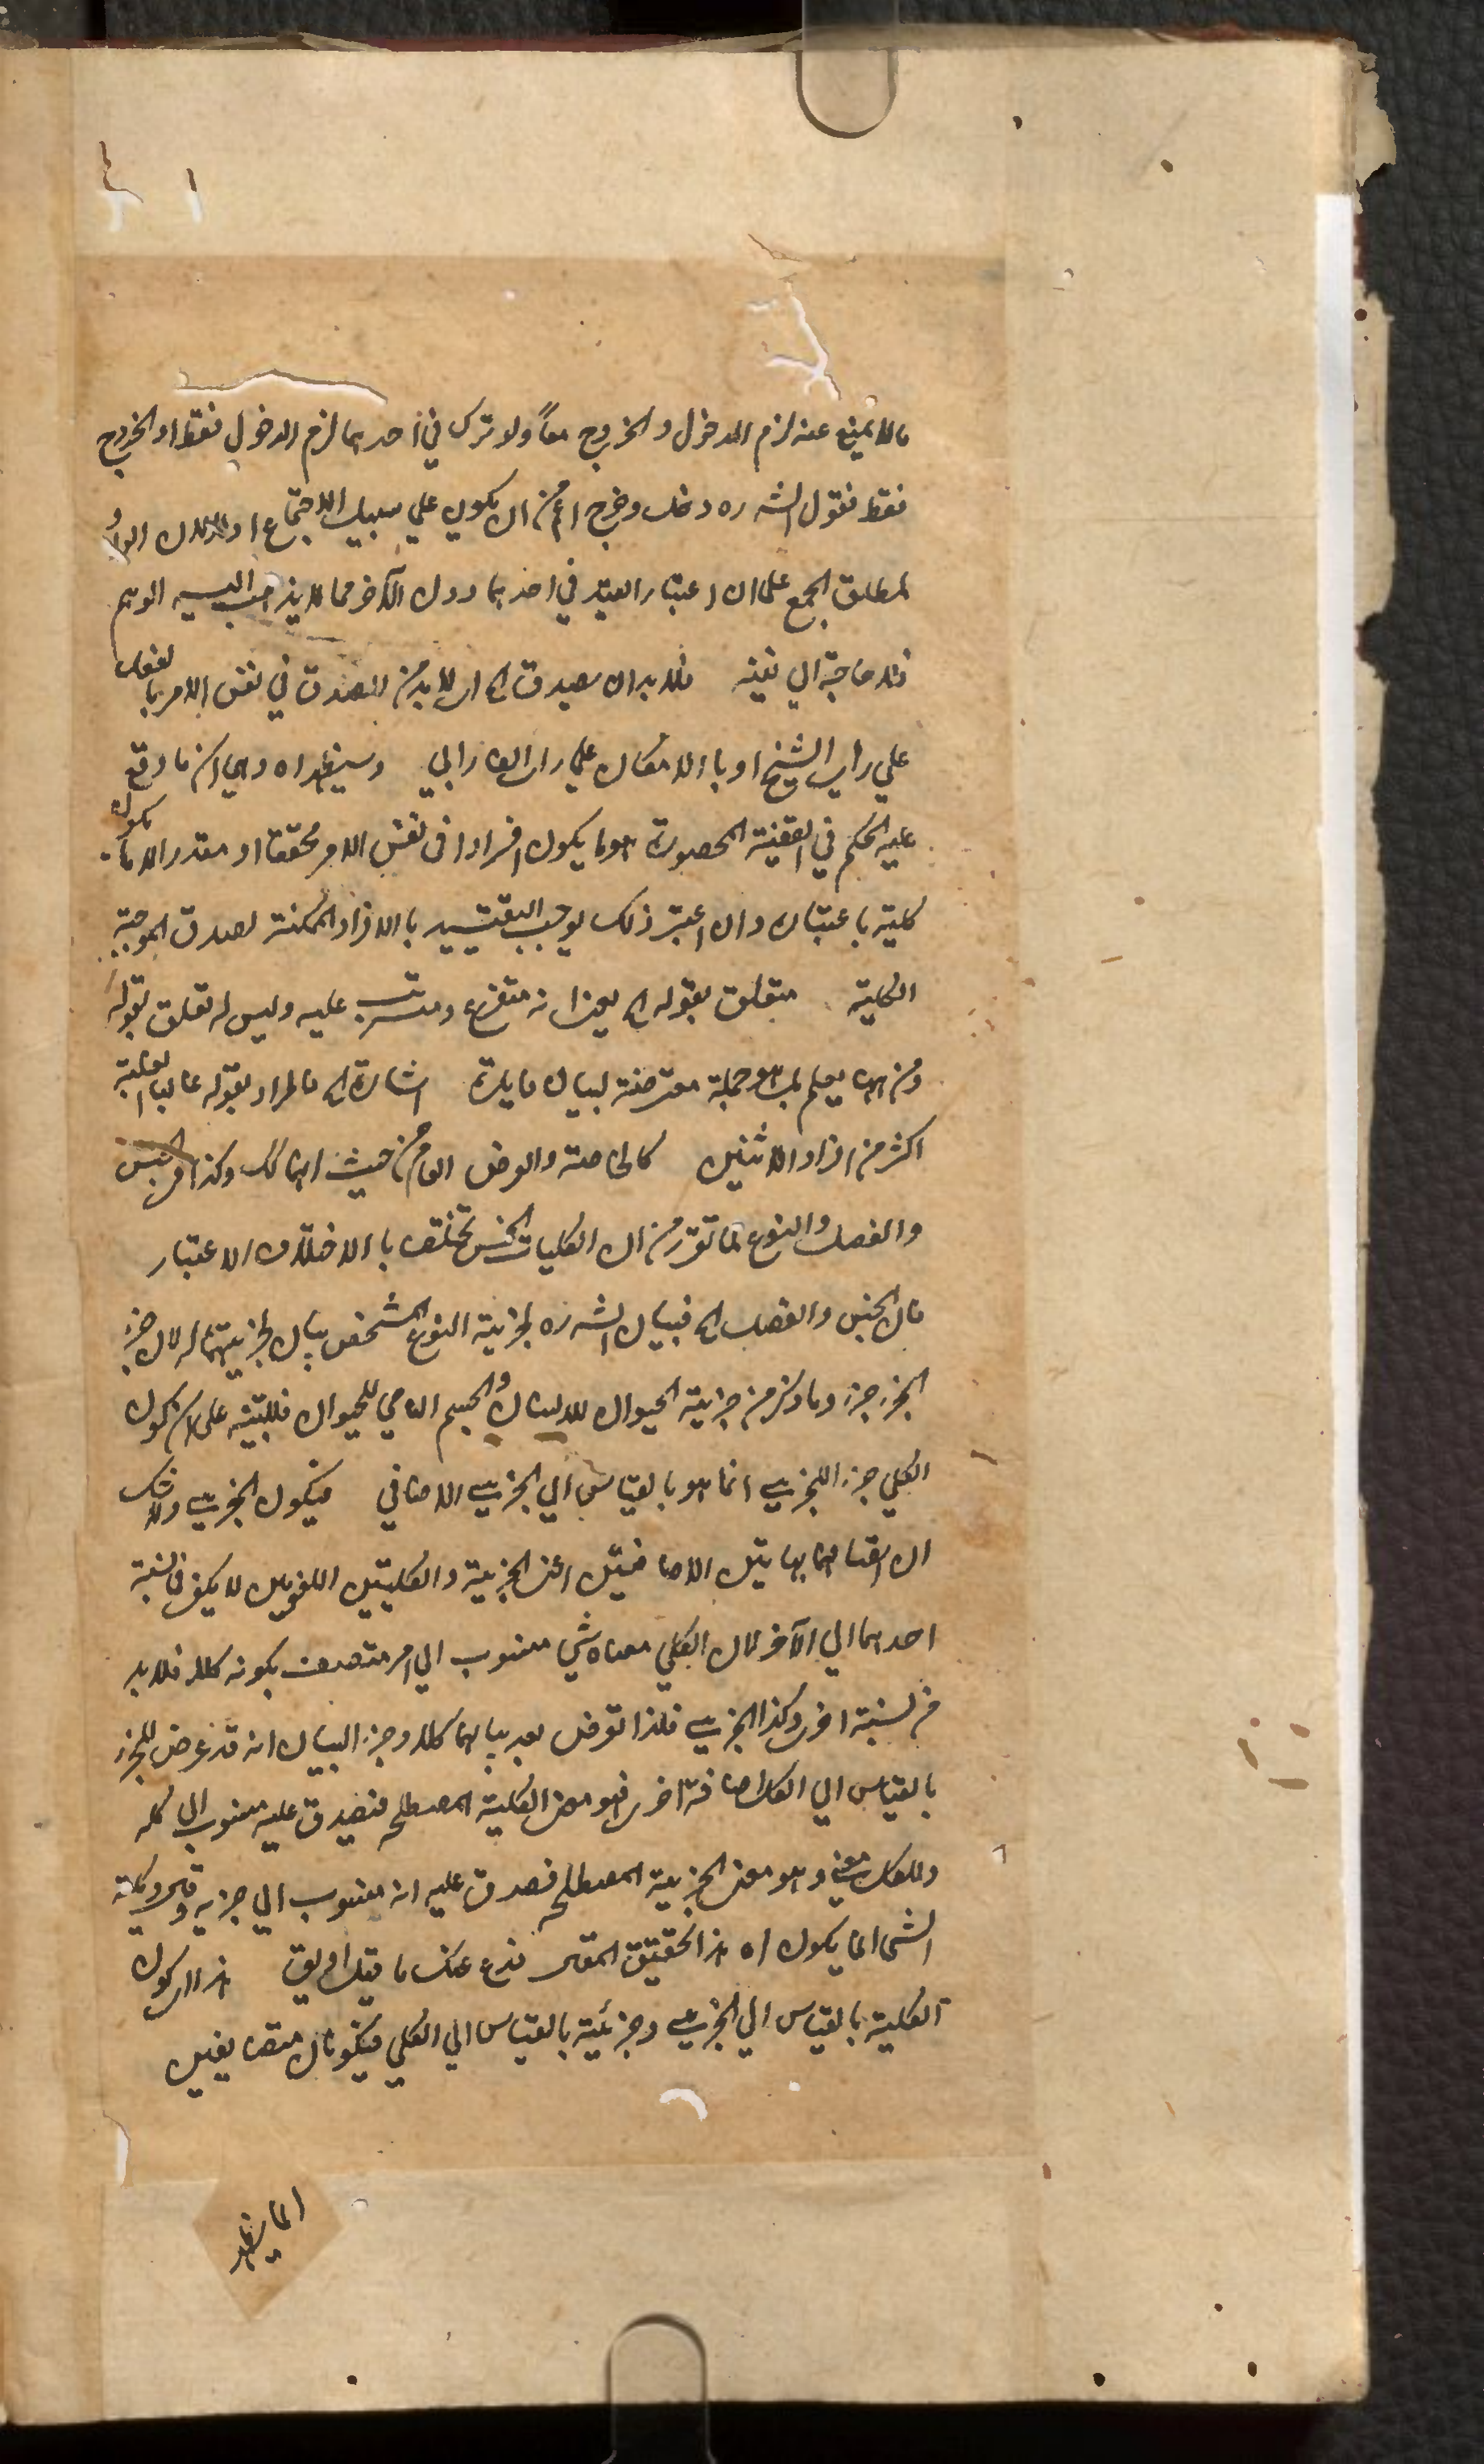 مالا يمنع عنه لزم الدخول والخروج معاً ولو ترك في احدهما لزم الدخول فقط او الخروج
فقط فقول الشه ره دخل وخرج اعم من ان يكون علي سبيل الاجتماع او لا لان الواو
لمطلق الجمع على ان اعتبار القيد في احدهما دون الآخر مما لا يذهب اليه الوهم
فلا حاجة الي نفيه فلا بد ان يصدق اه اي لا بد من الصدق في نفس الامر بالفعل
علي راي الشيخ او بالامكان علي راي الفارابي وسيظهر اه وهي ان ما وقع
عليه الحكم في القضية المحصورة هو ما يكون افرادا في نفس الامر محققا او مقدرا لا ما يكون
كلية باعتبار وان اعتبر ذلك يوجب التقييد بالافراد الممكنة لصدق الموجبة
الكلية متعلق بقوله اه يعني انه متفرع ومترتب عليه وليس له تعلق بقوله
ومن ههنا يعلم بل هو جملة معترضة لبيان فايدة اشارة اه فالمراد بقوله غالبا الغلبة
اكثر من افراد الاثنين كالخاصة والعرض العام من حيث انهما كك وكذا الجنس
والفصل والنوع لما تقرر من ان الكليات الخمس تختلف بالاختلاف الاعتبار
فان الجنس والفصل اه فبيان الشه ره لجزئية النوع الشخص بيان لجزئيتهما له لان جزء
الجزء جزء وما ذكر من جزئية الحيوان للانسان والجسم النامي للحيوان فللتنبيه على ان كون
الكلي جزء اللجزئي انما هو بالقياس الي الجزئي الاضافي فيكون الجزئي ولا شك
ان اتصالهما بهاتين الاضافتين اعني الجزئية والكليتين اللغويين لا يكفي في نسبة
احدهما الي الآخر لان الكلي معناه شي منسوب الي امر متصف بكونه كلا فلا بد
من نسبة اخرى وكذا الجزئي فلذا تعرض بعد بيانهما كلا وجزء البيان انه قد عرض للجزء
بالقياس الي الكل اضافة اخرى هو معنى الكلية المصطلحه فيصدق عليه منسوب الي كله
وللكل معنى وهو معنى الجزئية المصطلحه فصدق عليه انه منسوب الي جزئه قوله وكلية
الشي انما يكون اه هذا لتحقيق المقام فدع عنك ما قيل او يق هذا اي كون
الكلية بالقياس الي الجزئي وجزئية بالقياس الي الكلي فيكونان متضايفين